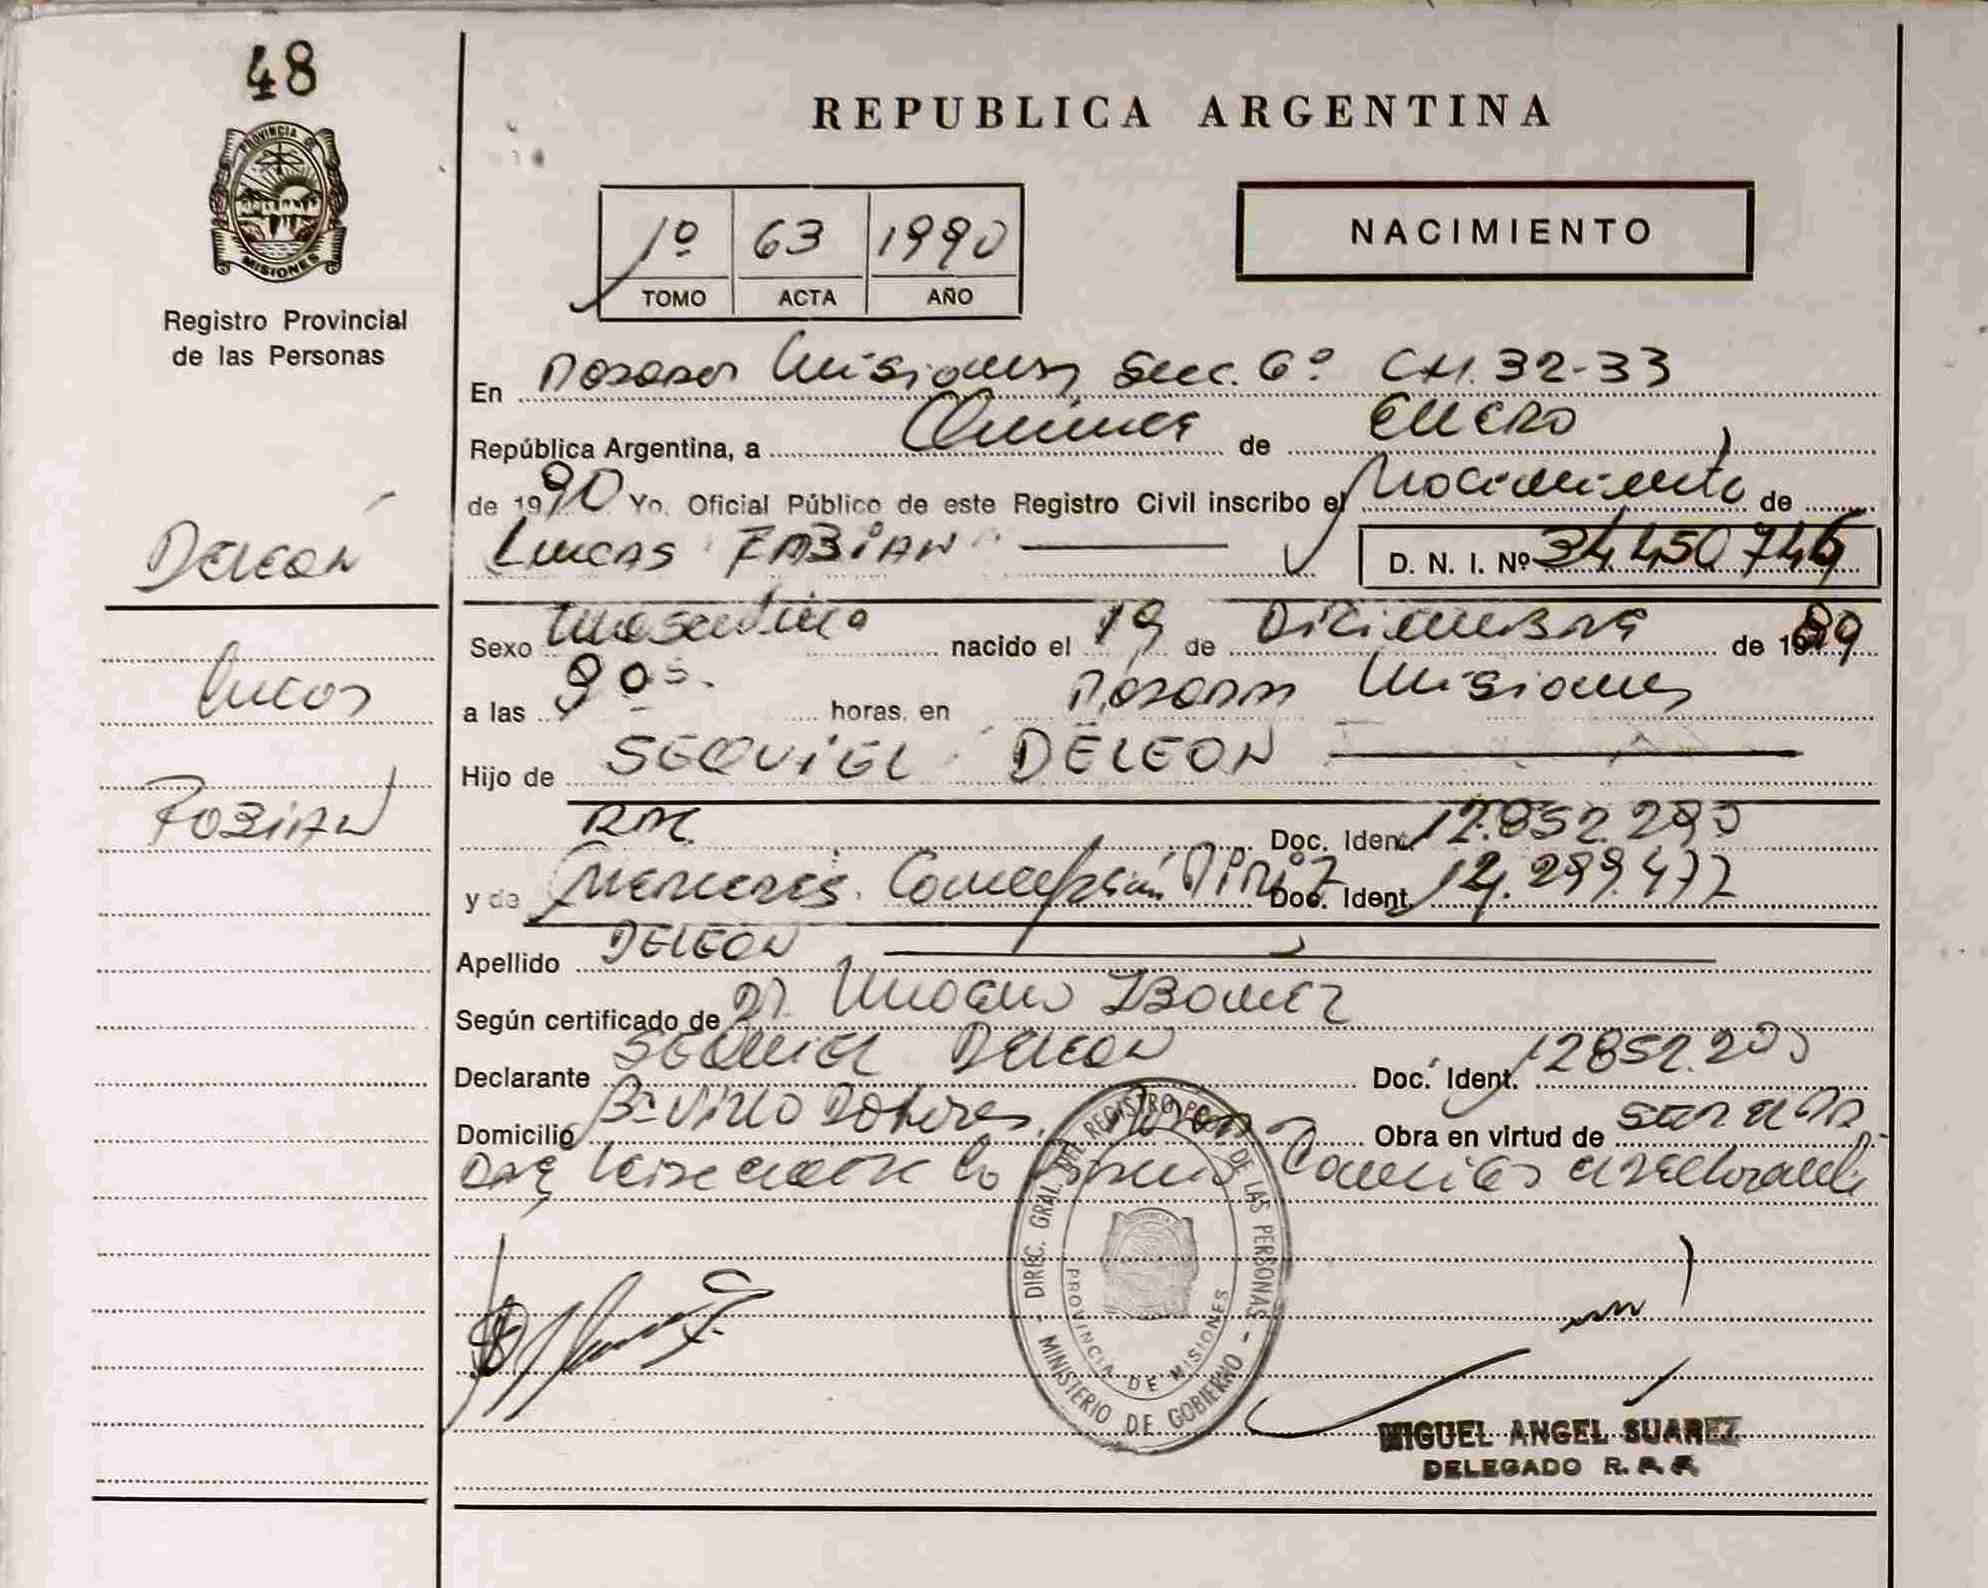 48
PROVINCIA DE
MISIONES
Registro Provincial
de las Personas
REPUBLICA ARGENTINA
1º 63 1990
TOMO ACTA AÑO
NACIMIENTO
En Posadas Misiones Secc. 6º CH. 32-33
República Argentina, a Quince de Enero
de 1990 Yo, Oficial Público de este Registro Civil inscribo el Nacimiento de
LUCAS FABIAN D. N. I. Nº 34450746
DELEON
Lucas
FABIAN
Sexo Masculino nacido el 19 de Diciembre de 1989
a las 9 05. horas, en Posadas Misiones
Hijo de SEQUIEL DELEON
Doc. Ident. 12.852.293
y de Mercedes Concepción Doc. Ident. 14.299.477
Apellido DELEON
Según certificado de
Declarante SEQUIEL DELEON Doc. Ident. 12852.293
Domicilio Bº Villa Obra en virtud de ser el
DIREC. GRAL. DEL REGISTRO DE LAS PERSONAS - MINISTERIO DE GOBIERNO -
PROVINCIA DE MISIONES
MIGUEL ANGEL SUAREZ
DELEGADO R.